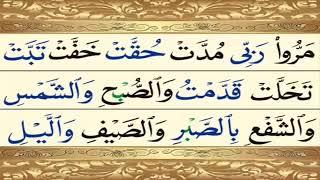 مَرُّوا رَبِّى مُدَّتْ حُقَّتْ خَفَّتْ تَبَّتْ
تَخَلَّتْ قَدَّمْتُ وَالصُّبْحِ وَالشَّمْسِ
وَالشَّفْعِ بِالصَّبْرِ وَالصَّيْفِ وَالَّيْلِ